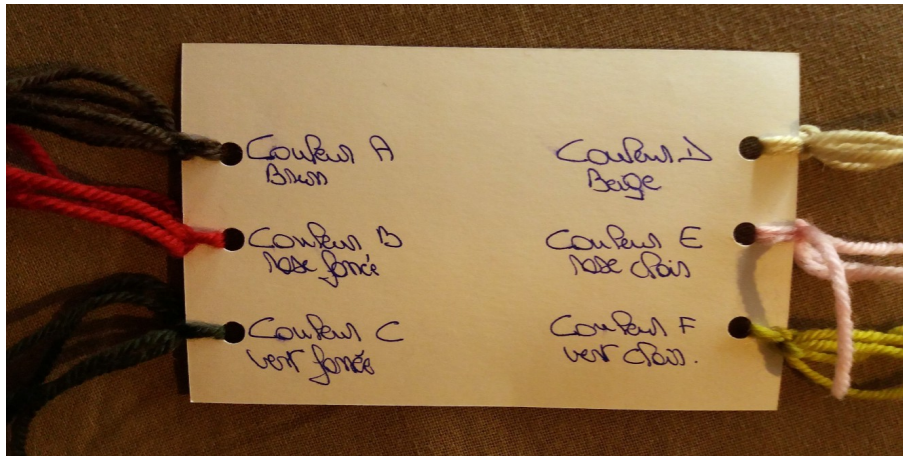 Couleur A
Brun
Couleur B
rose foncée
Couleur C
vert foncée
Couleur D
Beige
Couleur E
rose clair
Couleur F
vert clair.